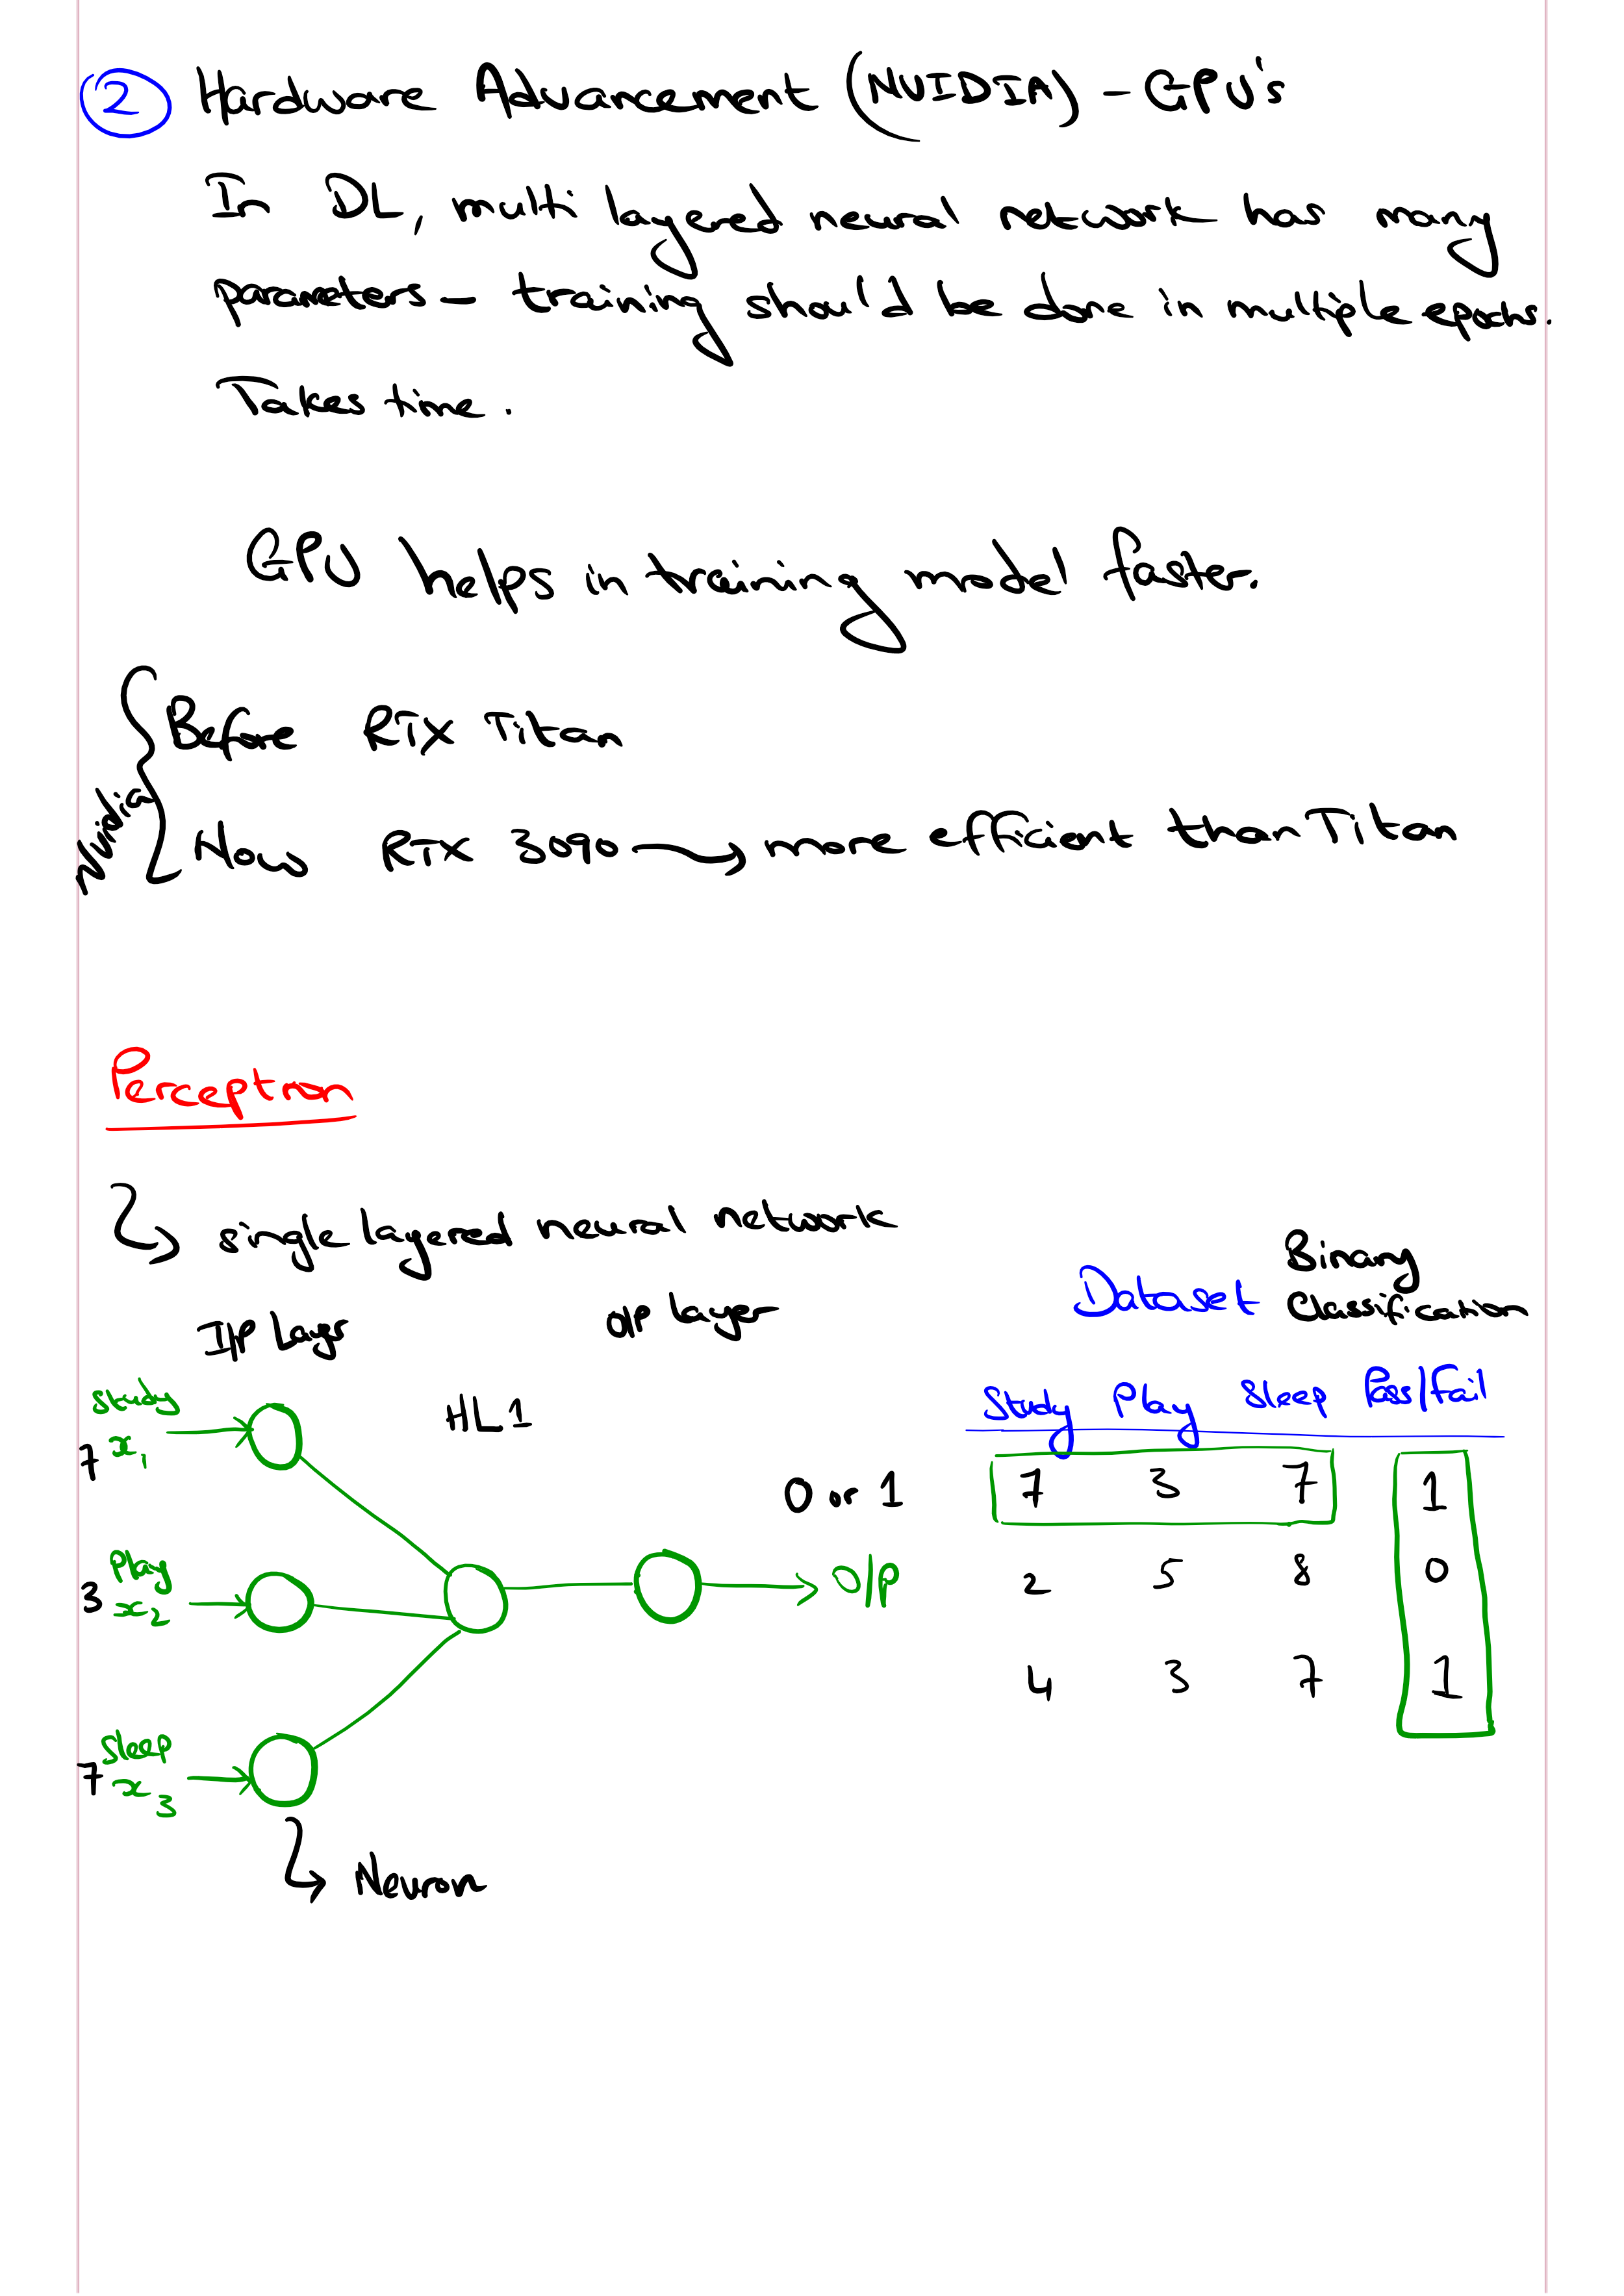 2 Hardware Advancement (NVIDIA) - GPU's
In DL, multi layered neural network has many
parameters - training should be done in multiple epochs.
Takes time.
GPU helps in training model faster.
Nvidia
Before RTX Titan
Now RTX 3090 → more efficient than Titan
Perceptron
single layered neural network
I/P Layr
O/P layer
HL1
Study
7 x1
Play
3 x2
Sleep
7 x3
0 or 1
O/P
Neuron
Dataset Binary
Classification
Study Play Sleep Pass/Fail
7 3 7 1
2 5 8 0
4 3 7 1